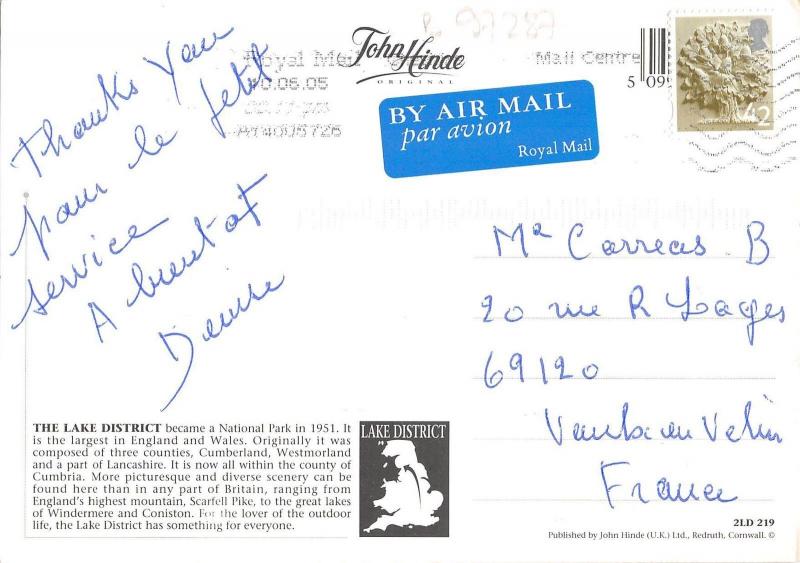 R 97287
John Hinde
ORIGINAL
Royal Mail
Mail Centre
0.06.05
AT4005726
5 099
42
BY AIR MAIL
par avion
Royal Mail
Thanks You
pour le petit
service
A bientot
Denise
Me Carreas B
20 rue R Lages
69120
Vaulx en Velin
France
THE LAKE DISTRICT became a National Park in 1951. It
is the largest in England and Wales. Originally it was
composed of three counties, Cumberland, Westmorland
and a part of Lancashire. It is now all within the county of
Cumbria. More picturesque and diverse scenery can be
found here than in any part of Britain, ranging from
England's highest mountain, Scarfell Pike, to the great lakes
of Windermere and Coniston. For the lover of the outdoor
life, the Lake District has something for everyone.
LAKE DISTRICT
2LD 219
Published by John Hinde (U.K.) Ltd., Redruth, Cornwall. ©